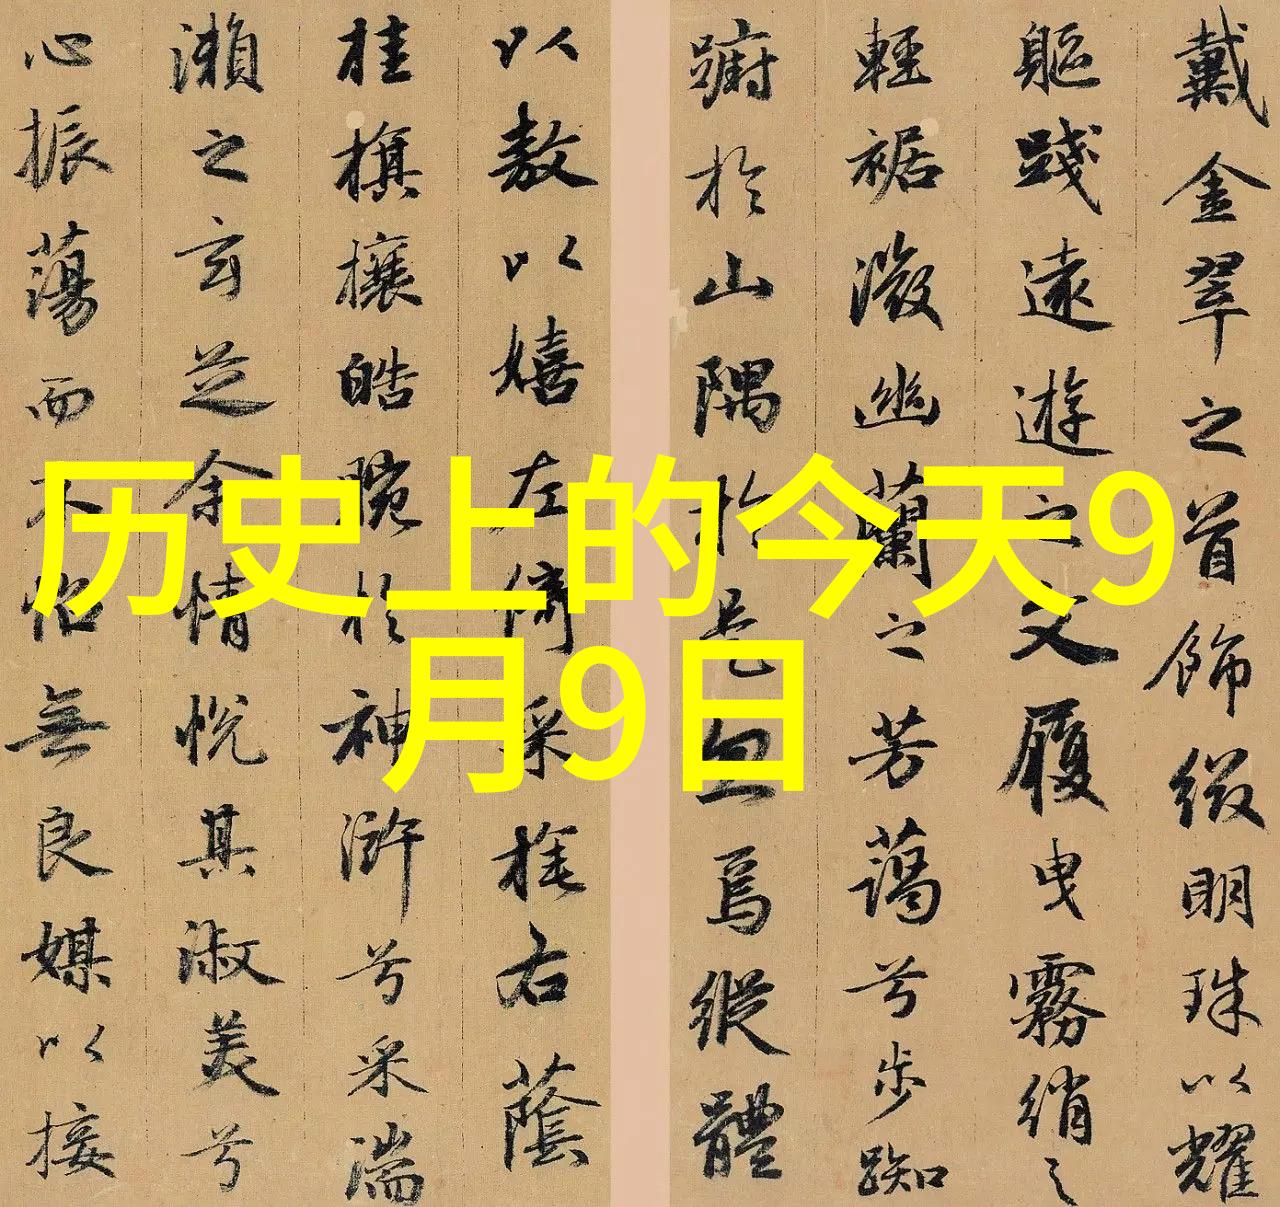 戴金翠之首飾綴明珠以耀
軀踐遠遊之文履曳霧綃之
輕裾微幽蘭之芳藹兮步踟
躕於山隅於是忽焉縱體
以敖以嬉左倚采旄右蔭
桂旗攘皓腕於神滸兮采湍
瀨之玄芝余情悅其淑美兮
心振蕩而不怡無良媒以接
历史上的今天9
月9日